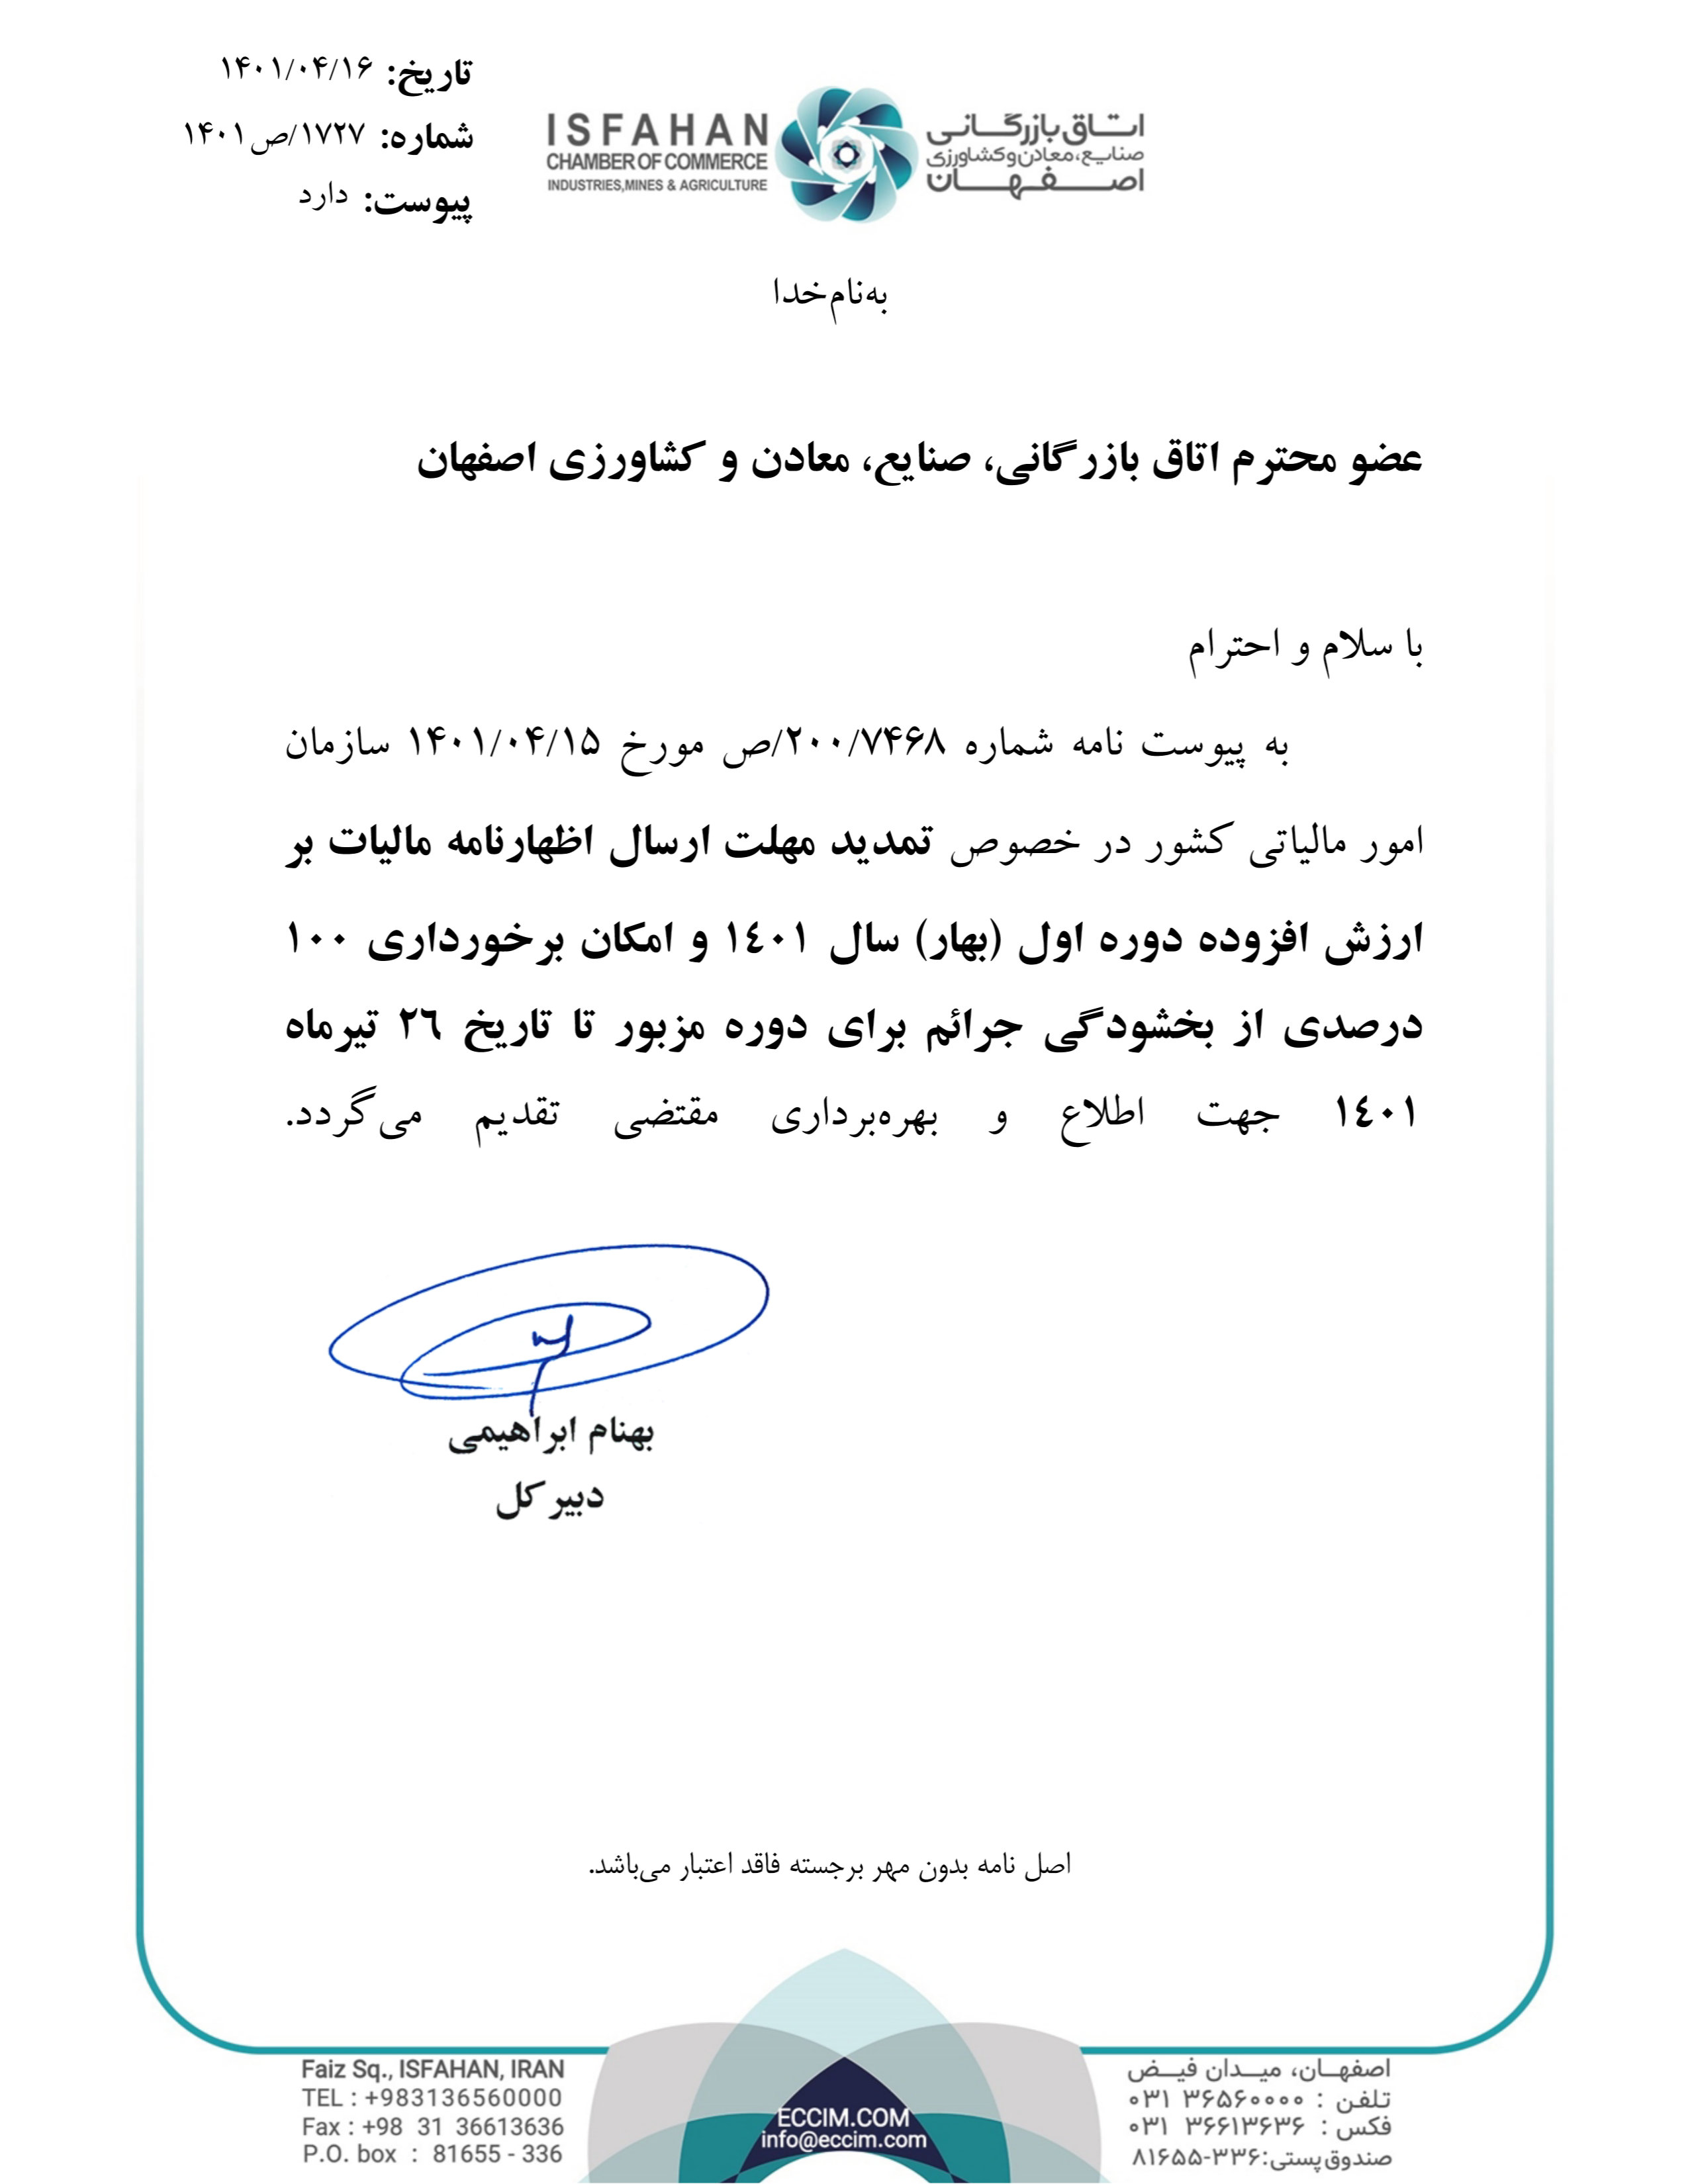 تاریخ: ۱۴۰۱/۰۴/۱۶
شماره: ۱۷۲۷/ص۱۴۰۱
پیوست: دارد
ISFAHAN
CHAMBER OF COMMERCE
INDUSTRIES,MINES & AGRICULTURE
اتاق بازرگانی
صنایع، معادن و کشاورزی
اصفهان
به‌نام خدا
عضو محترم اتاق بازرگانی، صنایع، معادن و کشاورزی اصفهان
با سلام و احترام
به پیوست نامه شماره ۲۰۰/۷۴۶۸/ص مورخ ۱۴۰۱/۰۴/۱۵ سازمان
امور مالیاتی کشور در خصوص تمدید مهلت ارسال اظهارنامه مالیات بر
ارزش افزوده دوره اول (بهار) سال ١٤٠١ و امکان برخورداری ١٠٠
درصدی از بخشودگی جرائم برای دوره مزبور تا تاریخ ٢٦ تیرماه
١٤٠١ جهت اطلاع و بهره‌برداری مقتضی تقدیم می‌گردد.
بهنام ابراهیمی
دبیر کل
اصل نامه بدون مهر برجسته فاقد اعتبار می‌باشد.
Faiz Sq., ISFAHAN, IRAN
TEL : +983136560000
Fax : +98 31 36613636
P.O. box : 81655 - 336
ECCIM.COM
info@eccim.com
اصفهـان، میـدان فیـض
تلفن : ۳۶۵۶۰۰۰۰ ۰۳۱
فکس : ۳۶۶۱۳۶۳۶ ۰۳۱
صندوق پستی:۳۳۶-۸۱۶۵۵